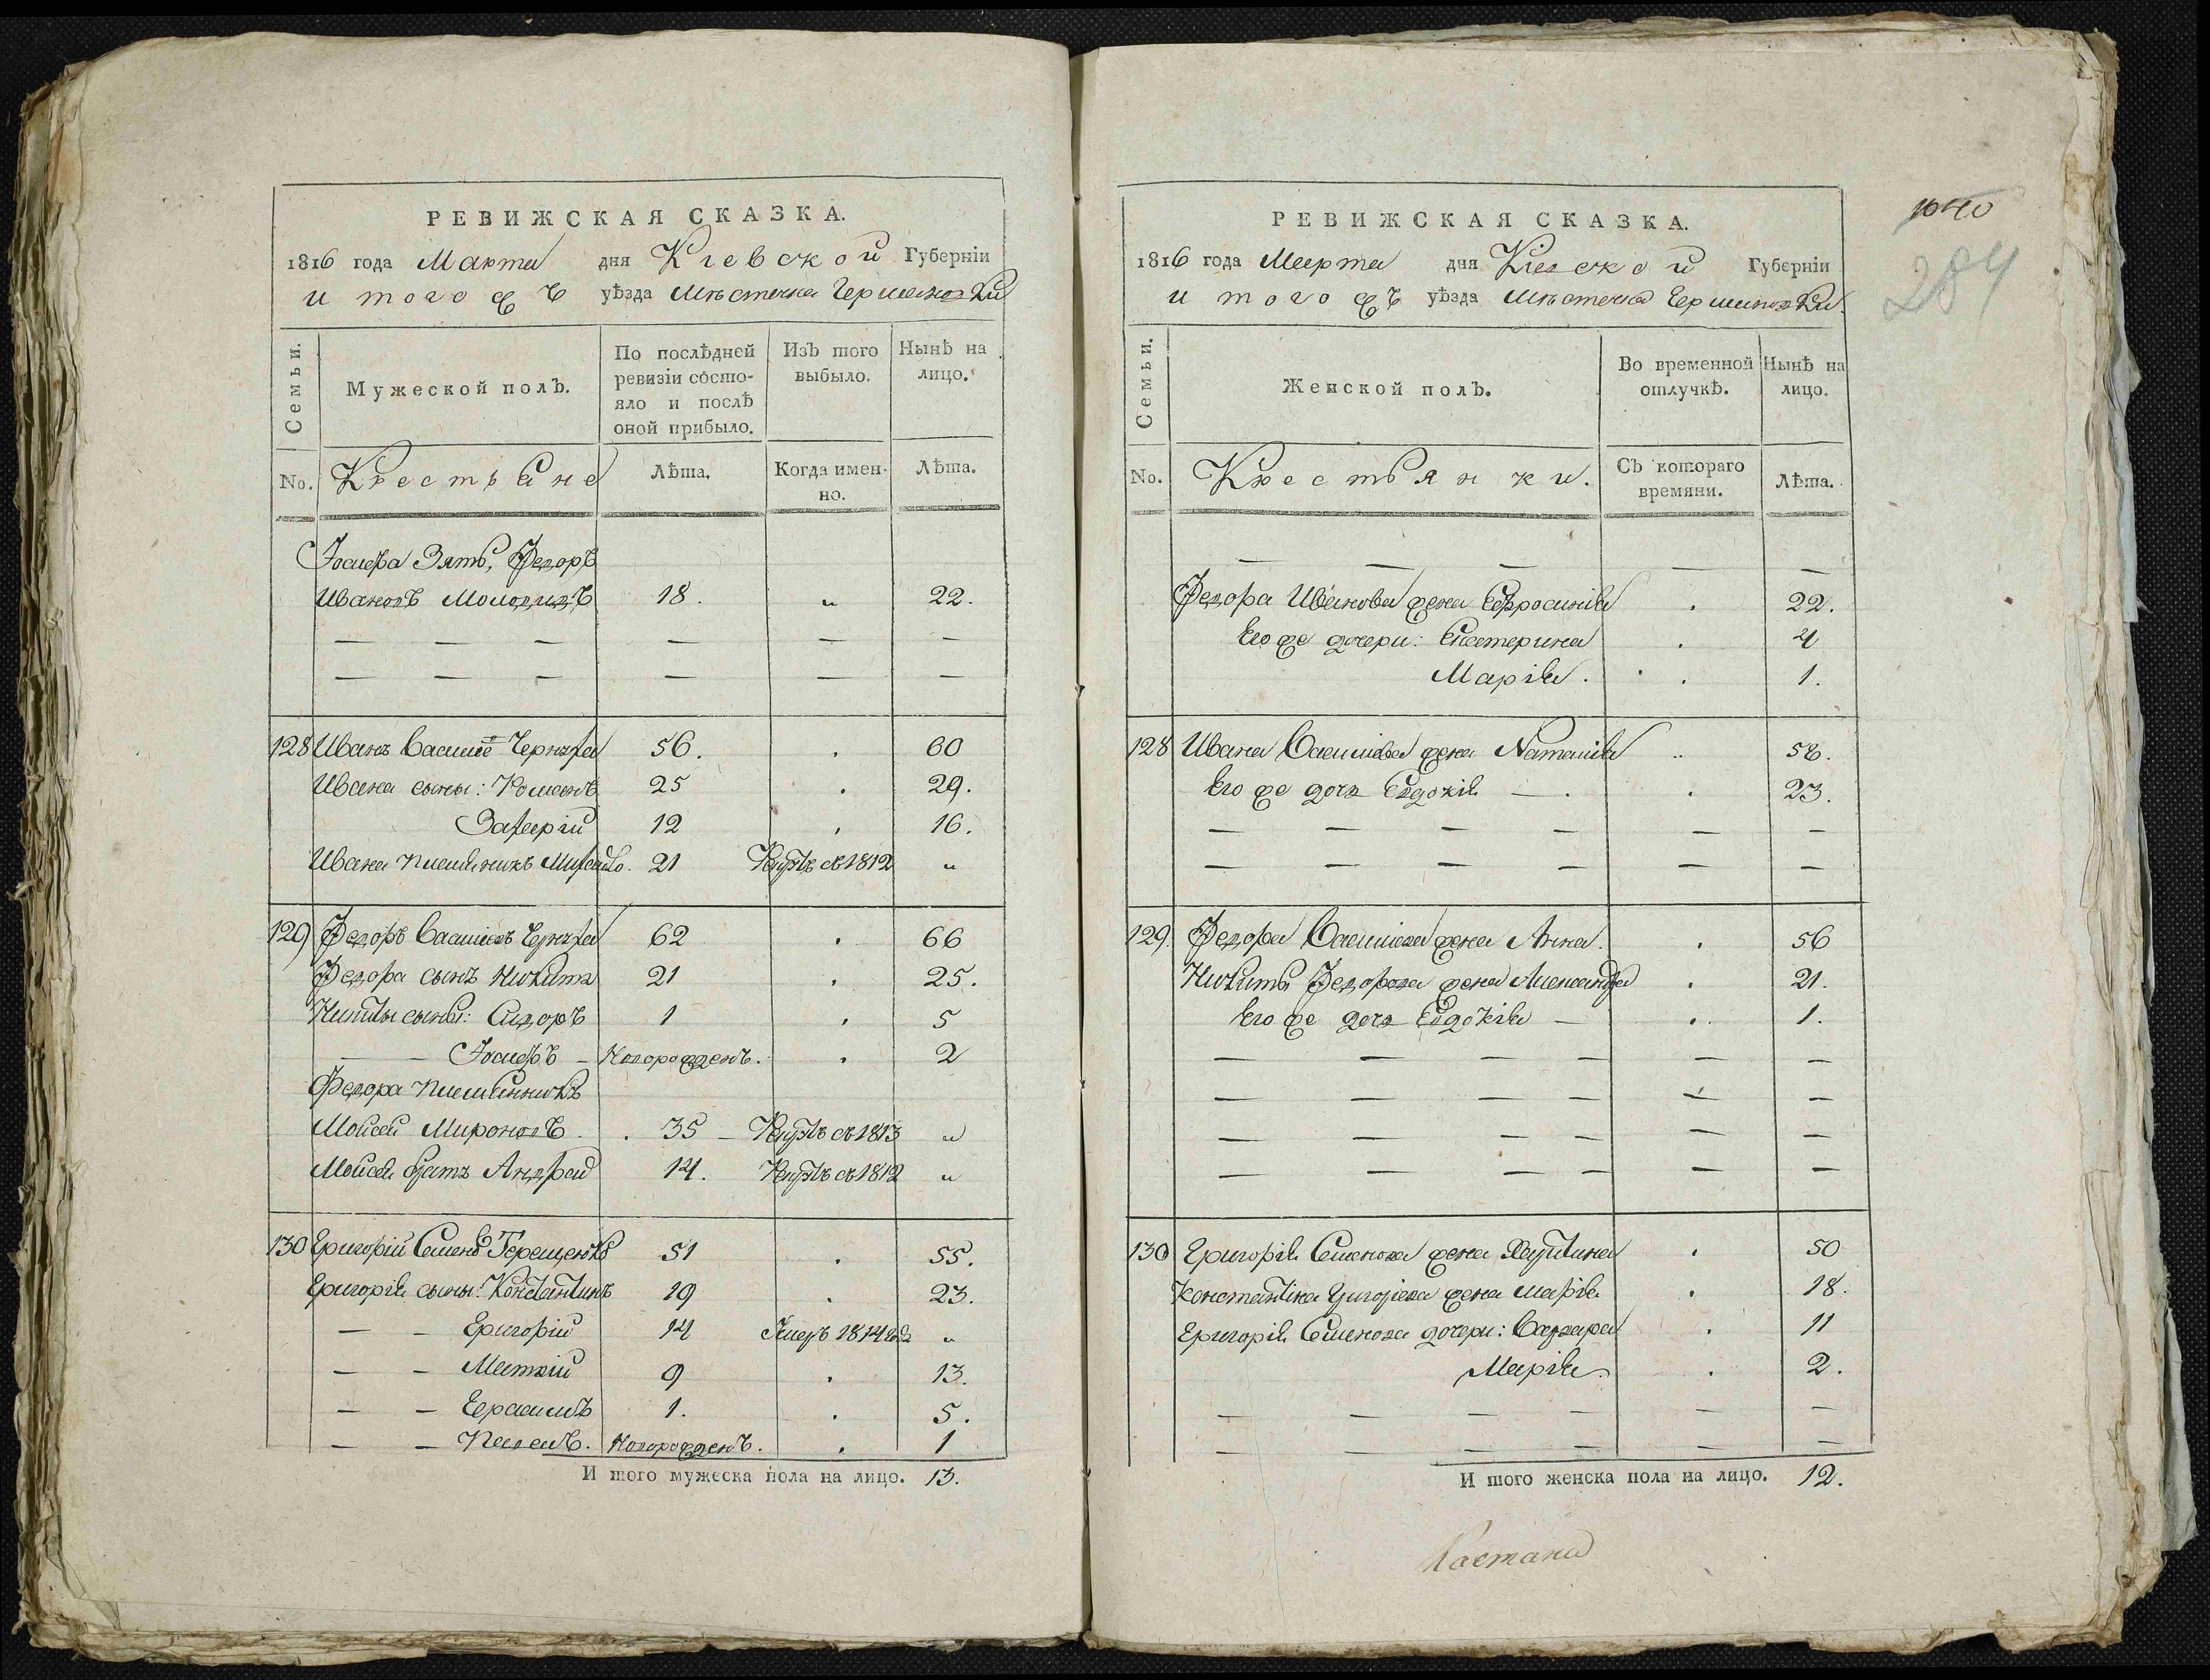 РЕВИЖСКАЯ СКАЗКА.
1816 года Марта дня Кіевской Губерніи
и того жъ уѣзда Мѣстечка Германовки
Семьи.
Мужеской полъ.
По послѣдней ревизіи состо-
яло и послѣ оной прибыло.
Изъ того выбыло.
Нынѣ на лицо.
No. Крестьяне
Лѣта.
Когда имен-
но.
Лѣта.
Іосифа Зять, Федоръ
Ивановъ 18. " 22.
— — — — — —
— — — — — —
128 Иванъ Васильѣ Черняха 56. . 60
Ивана сыны: Романъ 25 . 29.
Захарій 12 . 16.
Ивана племянникъ Михайло. 21 съ 1812 "
129 Федоръ Васильевъ Черняха 62 . 66
Федора сынъ Никита 21 . 25.
Никиты сыны: Сидоръ 1 . 5
— — Іосифъ – Новорожденъ. . 2
Федора племянникъ
Мойсей Мироновъ . 35 – съ 1813 "
Мойсея братъ Андрей 14. съ 1812 "
130 Григорій Семенѡ Терещенко 51 . 55.
Григорія сыны: Константинъ 19 . 23.
— – Григорій 14 Умеръ 1814 года "
— – Матвій 9 . 13.
— – Герасимъ 1. . 5.
— – Павелъ. Новорожденъ. . 1
И того мужеска пола на лицо. 13.
1040
284
РЕВИЖСКАЯ СКАЗКА.
1816 года Марта дня Кіевской Губерніи
и того жъ уѣзда Мѣстечка Германовки.
Семьи.
Женской полъ.
Во временной отлучкѣ.
Нынѣ на лицо.
No. Крестьянки.
Съ котораго времяни.
Лѣта.
— — — — —
Федора Иванова жена Ефросинія . 22.
Его же дочери: Екатерина . 4
Марія. . . 1.
128 Ивана Васильева жена Наталія .. 58.
Его же дочь Евдокія — . . 23.
— — — — — —
— — — — — —
129. Федора Васильева жена Анна. . 56
Никиты Федорова жена Александра . 21.
Его же дочь Евдокія — . 1.
— — — — — —
— — — — — —
— — — — — —
— — — — — —
130 Григорія Семенова жена . 50
Константіна Григоріева жена Марія . 18.
Григорія Семенова дочери: Варвара . 11
Марія. . 2.
— — — — — —
— — — — — —
И того женска пола на лицо. 12.